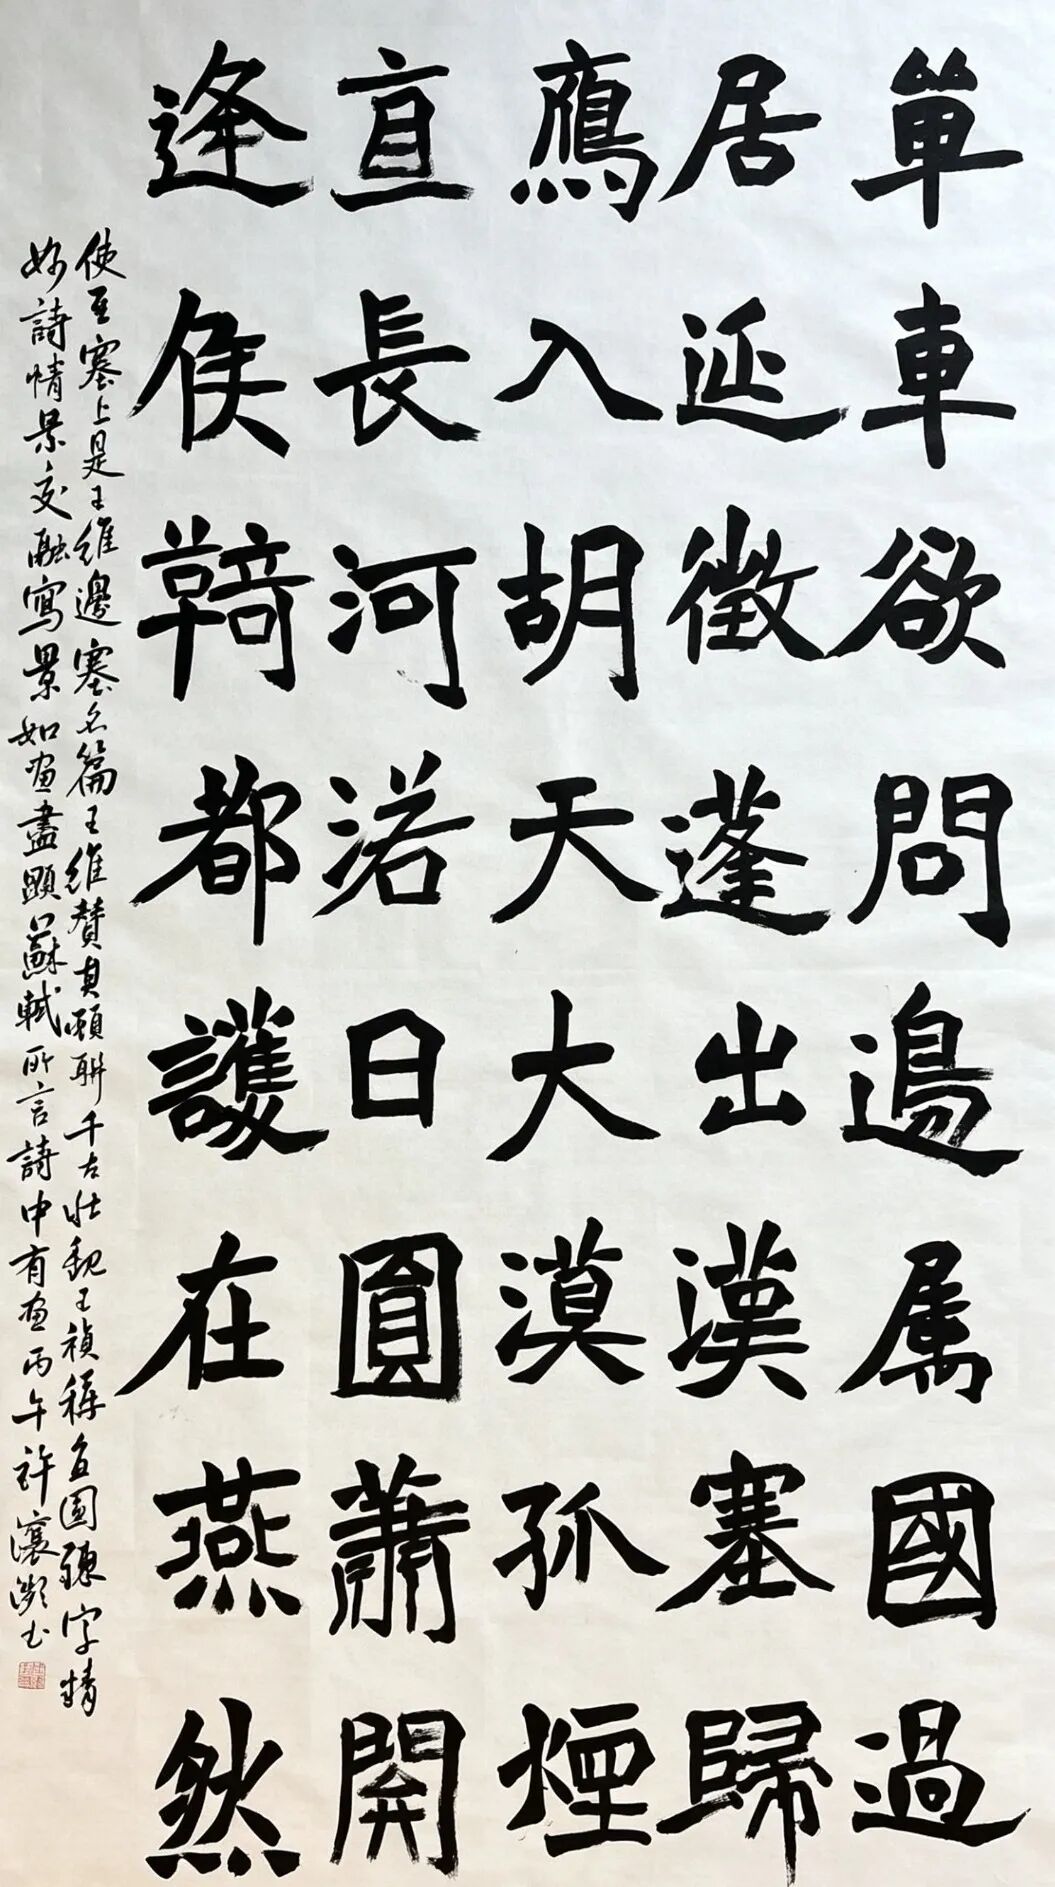 單車欲問邊属國過
居延徵蓬出漢塞歸
鴈入胡天大漠孤煙
直長河落日圓蕭関
逢侯騎都護在燕然
使至塞上是王維邊塞名篇王維贊其頸聯千古壯觀王禎稱直圓鍊字精
妙詩情景交融寫景如畫盡顯蘇軾所言詩中有畫丙午許瀼書